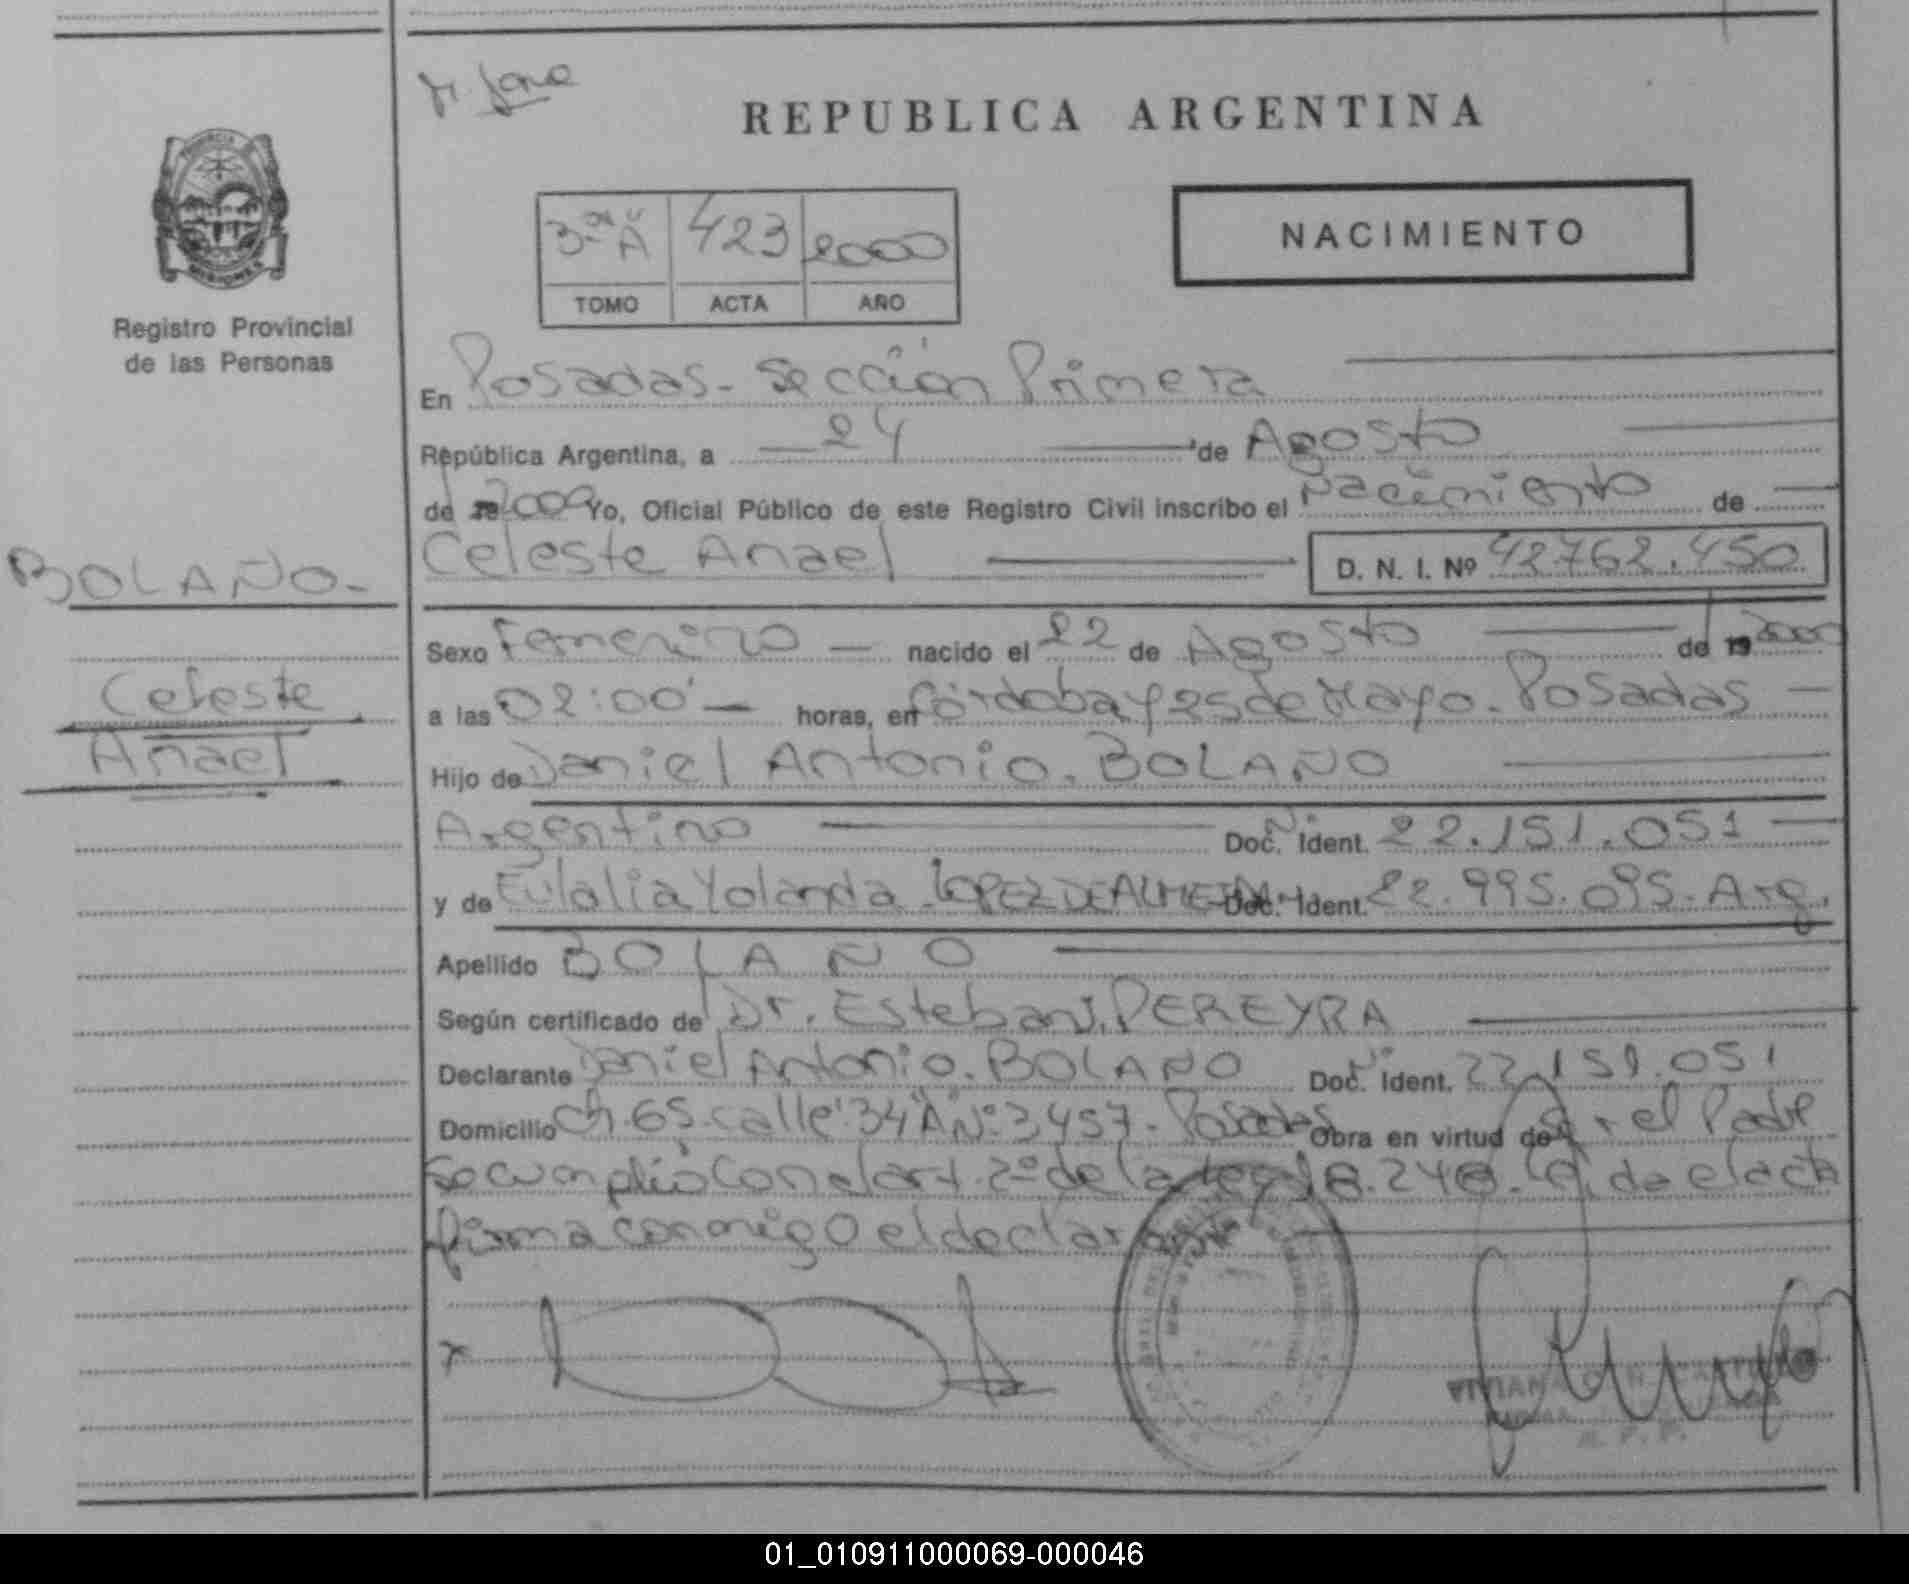 REPUBLICA ARGENTINA
NACIMIENTO
3º "A" 423 2000
TOMO ACTA AÑO
PROVINCIA DE
MISIONES
Registro Provincial
de las Personas
En Posadas - Sección Primera
República Argentina, a 24 de Agosto
de 19 2000 Yo, Oficial Público de este Registro Civil inscribo el Nacimiento de
Celeste Anael D. N. I. Nº 42762.450
BOLAÑO-
Celeste
Anael
Sexo Femenino - nacido el 22 de Agosto de 19 2000
a las 02:00'- horas, en Córdoba y 25 de Mayo. Posadas -
Hijo de Daniel Antonio. BOLAÑO
Argentino Doc. Nº Ident. 22.151.051
y de Eulalia Yolanda LOPEZ DE ALMEIDA Doc. Ident. 22.995.095-Arg.
Apellido BOLAÑO
Según certificado de Dr. Esteban J. PEREYRA
Declarante Daniel Antonio. BOLAÑO Doc. Nº Ident. 22.151.051
Domicilio Ch. 65. calle: 34 "A" Nº: 3457- Posadas Obra en virtud de Sr el Padre
Se cumplió con el art. 2º de la Ley 18.248. Leída el acta
firma conmigo el declarante
R. P. P.
01_010911000069-000046